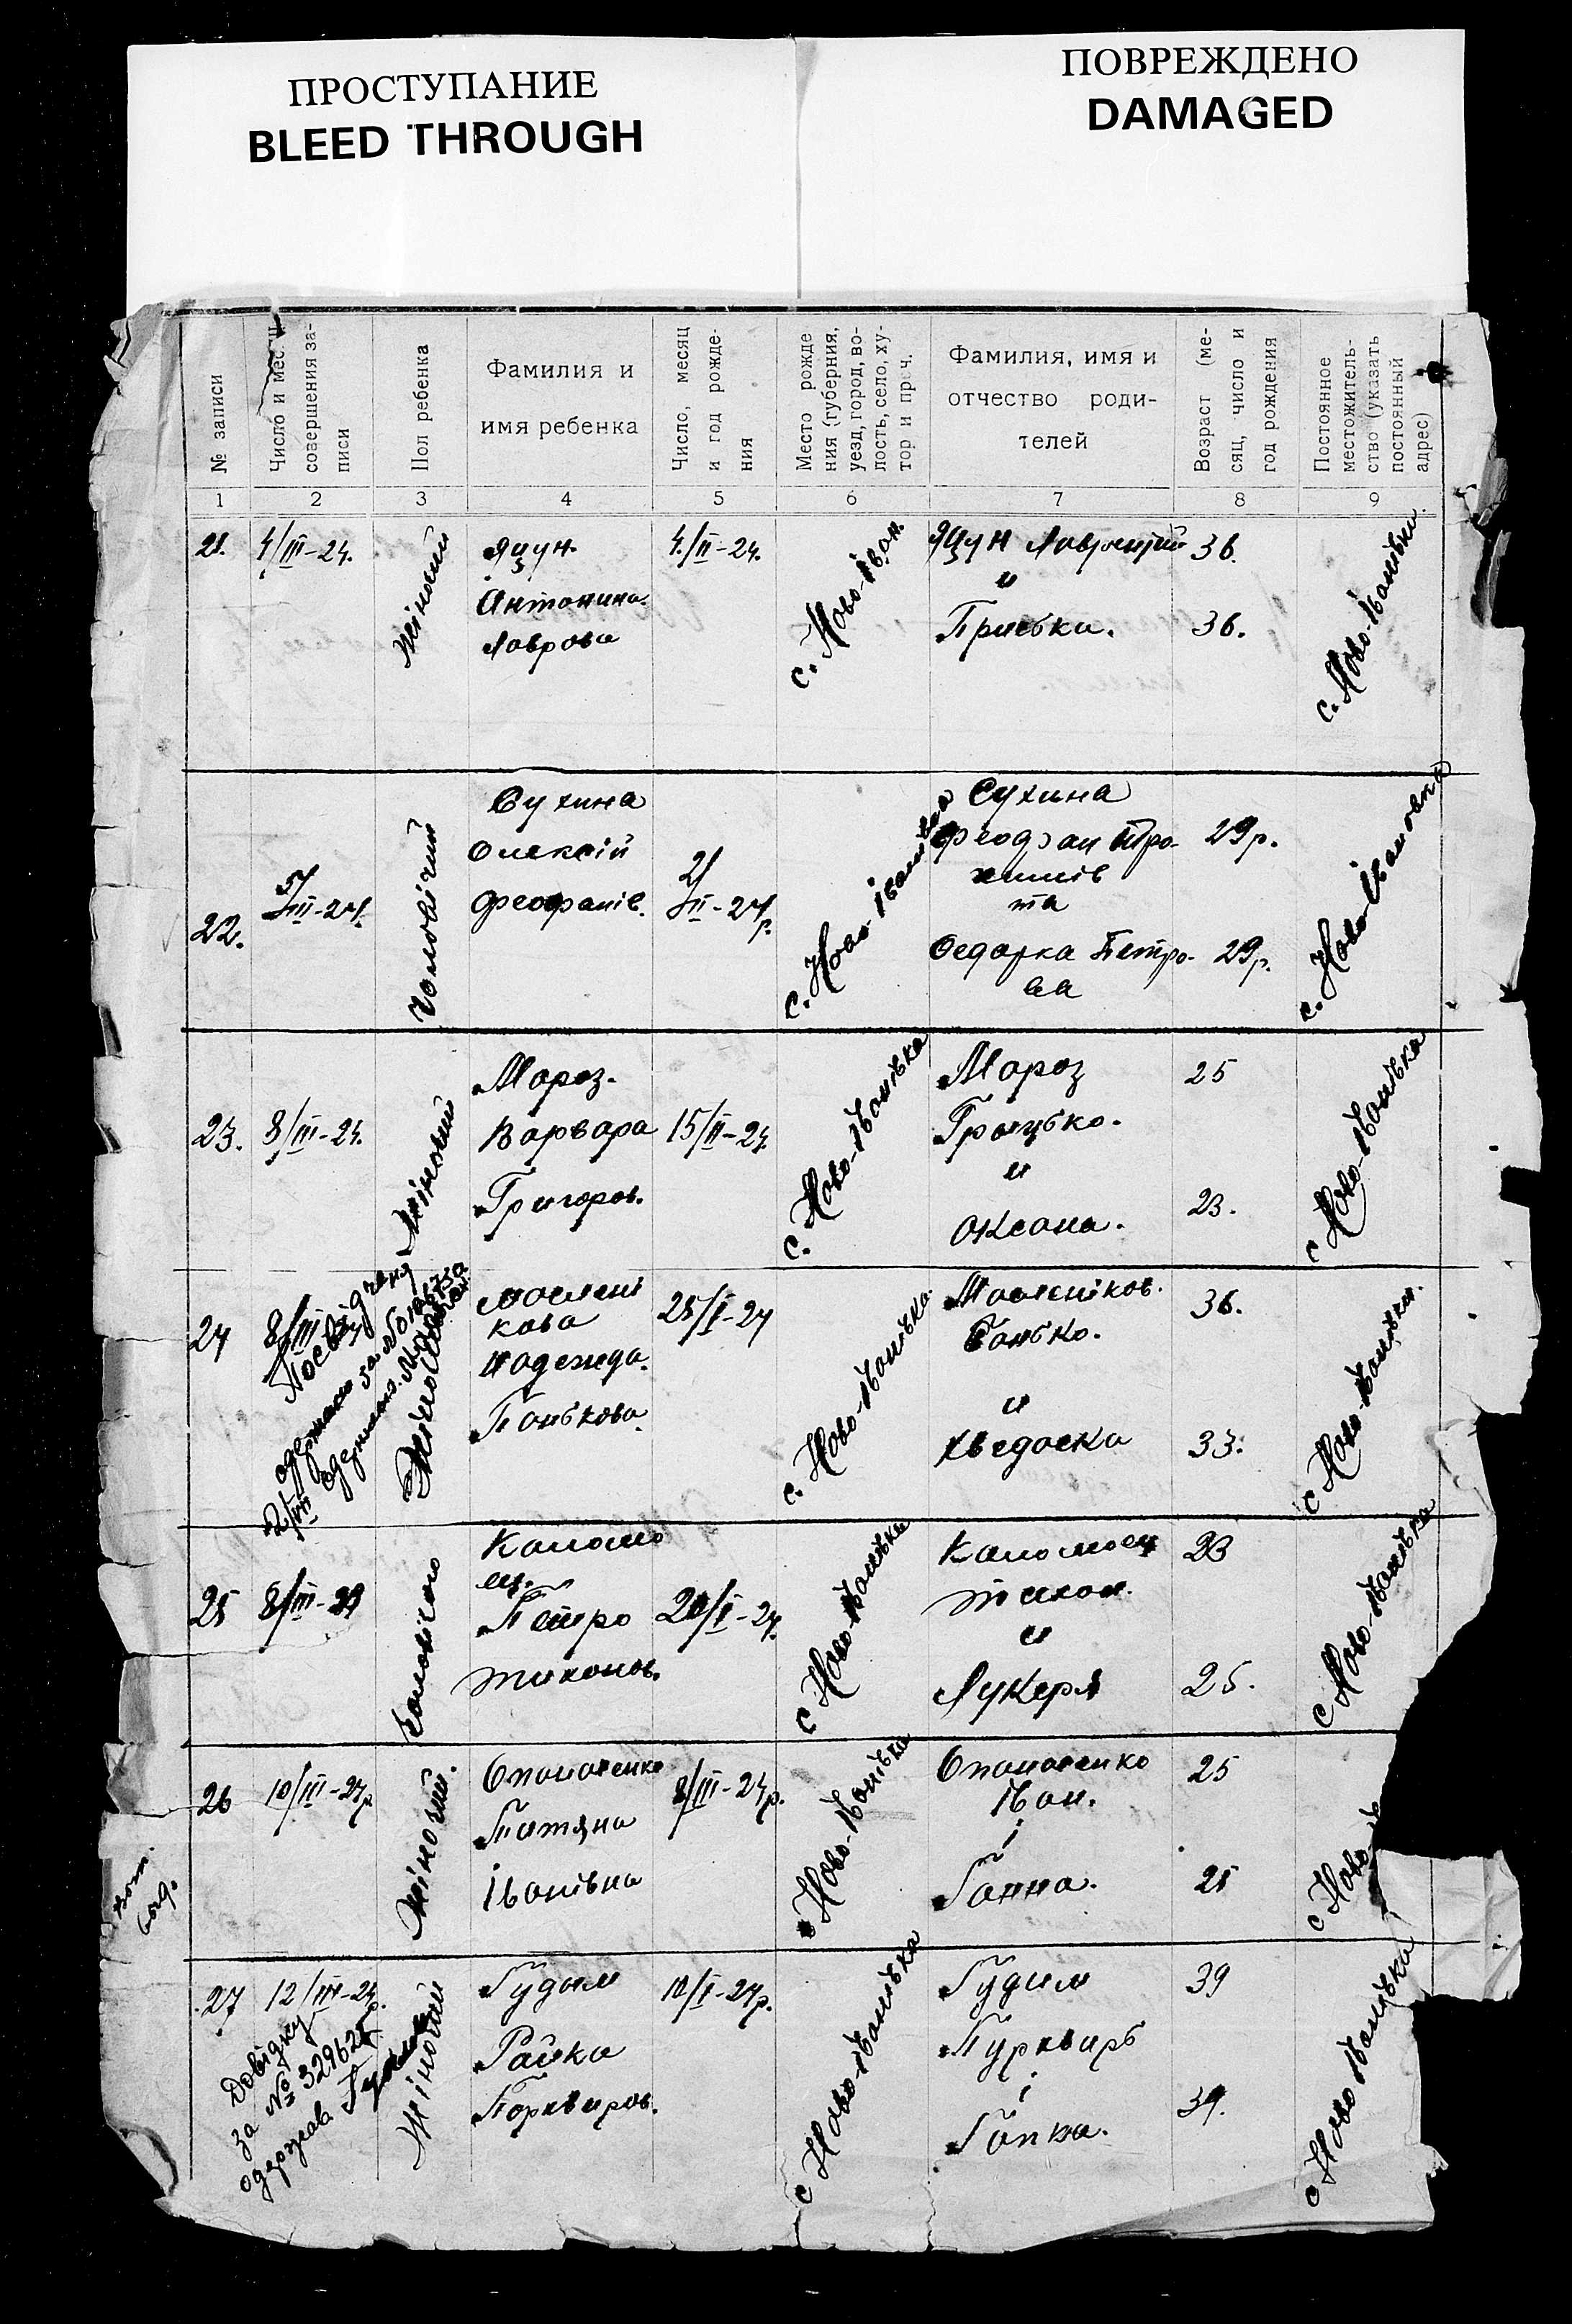 ПРОСТУПАНИЕ
BLEED THROUGH
ПОВРЕЖДЕНО
DAMAGED
№ записи
Число и месяц
совершения за-
писи
Пол ребенка
Фамилия и
имя ребенка
Число, месяц
и год рожде-
ния
Место рожде
ния (губерния,
уезд, город, во-
лость, село, ху-
тор и проч.
Фамилия, имя и
отчество роди-
телей
Возраст (ме-
сяц, число и
год рождения
Постоянное
местожитель-
ство (указать
постоянный
адрес)
1 2 3 4 5 6 7 8 9
21.
4/III-24.
Жіночий
Яцун.
Антонина.
Лаврова
4./II-24.
с. Ново-Іван.
Яцун Лаврентий
и
Приська.
36.
36.
с. Ново-Іванівки
22.
5/III-24.
Чоловічий
Сухина
Олексій
Феофанів.
21/II-24р.
с. Ново-Іванівка
Сухина
Феофан Тро-
химів
та
Федорка Петро-
ва
29р.
29р.
с. Ново-Івановка
23.
8/III-24.
Жіночий
Мороз.
Варвара
Григоров.
15/II-24.
с. Ново-Іванівка
Мороз
Грицько.
и
Оксана.
25
23.
с Ново-Іванівка
24
8/III-24
Посвідченя
одержано за №
2/VII одержано.
Жіночий
Маслені
кова
Надежда.
Панькова.
25/I-24
с. Ново-Іванівка.
Масленіков.
Панько.
и
Хведоска
36.
33.
с Ново-Іванівка.
25
8/III-24
Чоловічого
Коломо
ец.
Петро
Тихонов.
20/I-24.
с Ново-Іванівка
Коломоец
Тихон.
и
Лукеря
23
25.
с Ново-Іванівка
26
10/III-24р
Жіночий.
Опанасенко
Татяна
Іванівна
8/III-24р.
с Ново-Іванівка
Опанасенко
Іван.
і
Ганна.
25
25
с Ново-І
27
12/III-24р.
Довідку
за № 329625
одержав Гудим
Жіночий
Гудим
Райка
Порквиров.
10/I-24р.
с Ново-Іванівка
Гудим
Пурквирь
і
Гапка.
39
39.
с Ново Іванівка